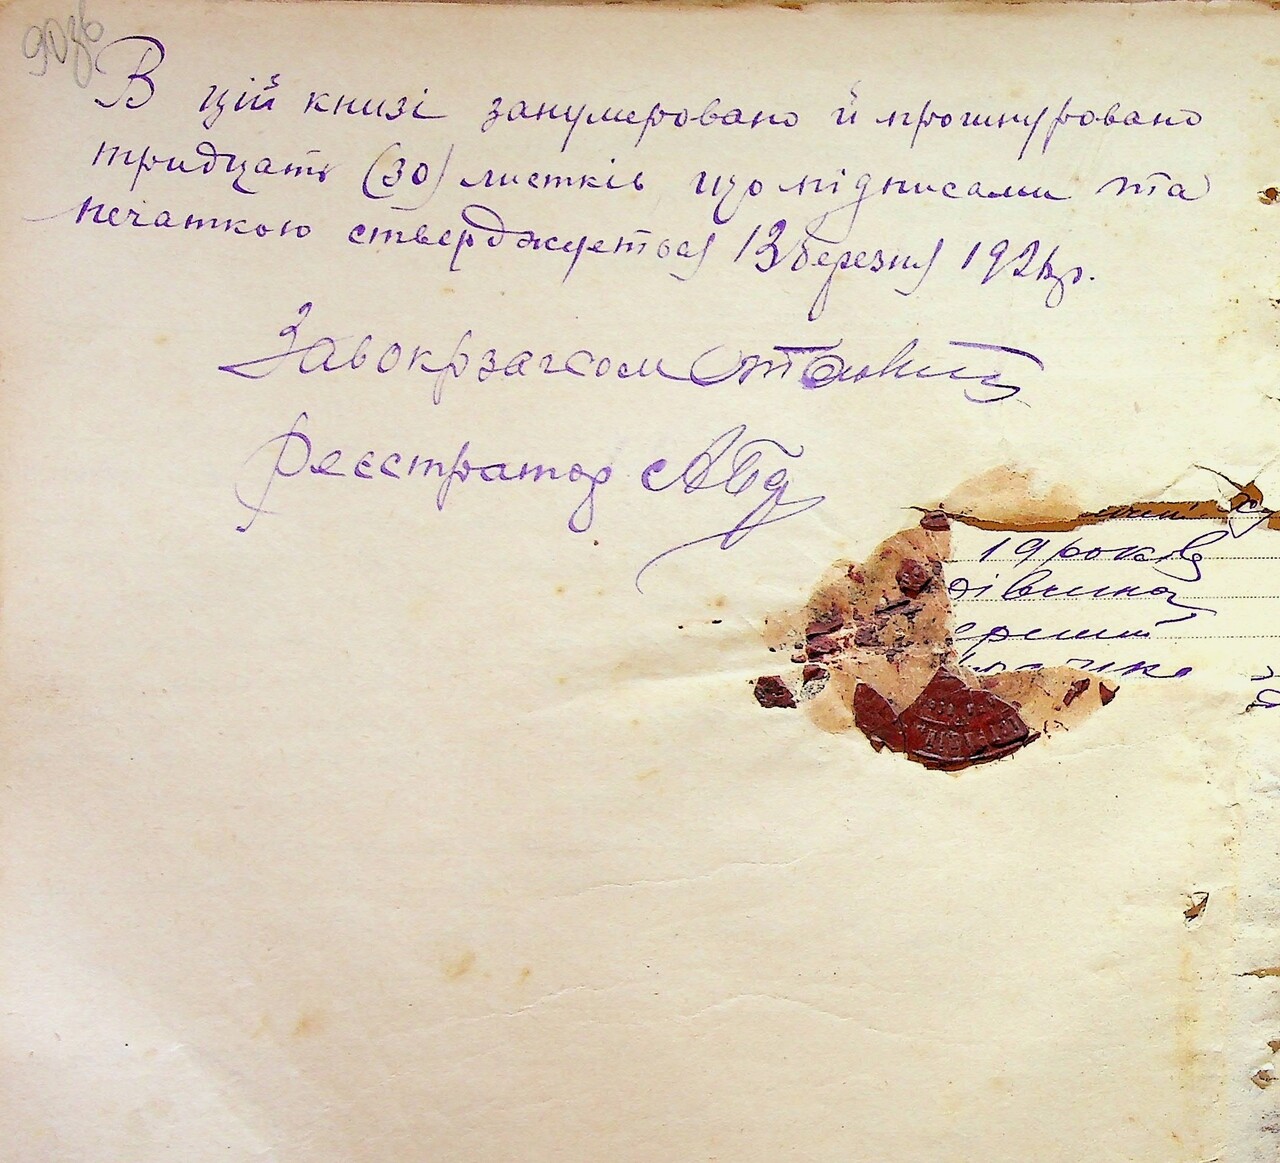 В цій книзі занумеровано й прошнуровано
тридцать (30) листків що підписами та
печаткою стверджується 13 березня 192 р.
Завокрзагсом
Реєстратор
19 років
дівчина